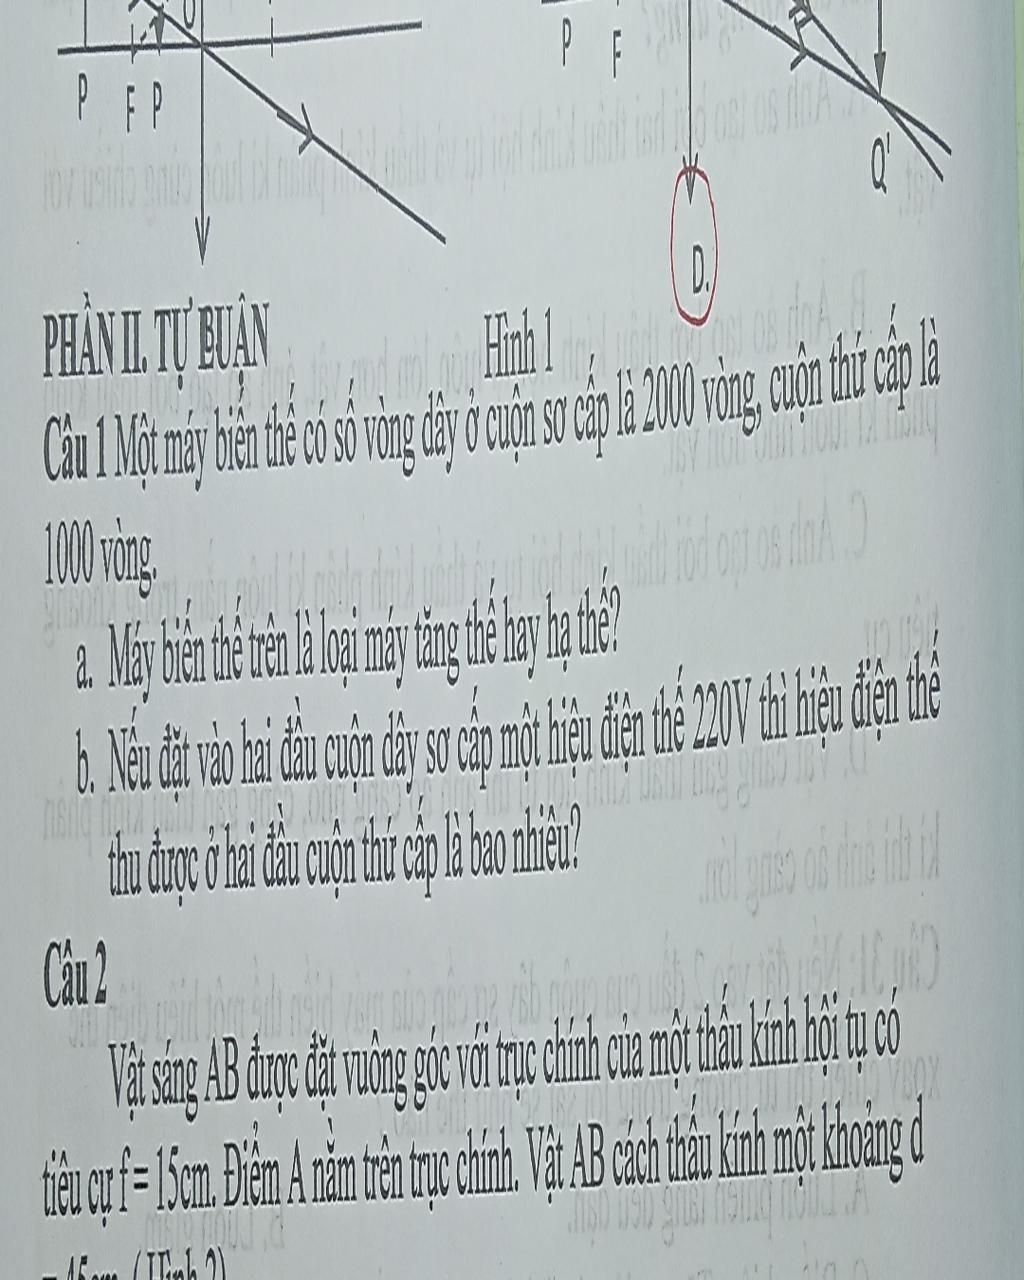 P
F
P
P
F
Q'
D.
PHẦN II. TỰ LUẬN
Hình 1
Câu 1 Một máy biến thế có số vòng dây ở cuộn sơ cấp là 2000 vòng, cuộn thứ cấp là
1000 vòng.
a. Máy biến thế trên là loại máy tăng thế hay hạ thế?
b. Nếu đặt vào hai đầu cuộn dây sơ cấp một hiệu điện thế 220V thì hiệu điện thế
thu được ở hai đầu cuộn thứ cấp là bao nhiêu?
Câu 2
Vật sáng AB được đặt vuông góc với trục chính của một thấu kính hội tụ có
tiêu cự f = 15cm. Điểm A nằm trên trục chính. Vật AB cách thấu kính một khoảng d
= 45cm. ( Hình 2)